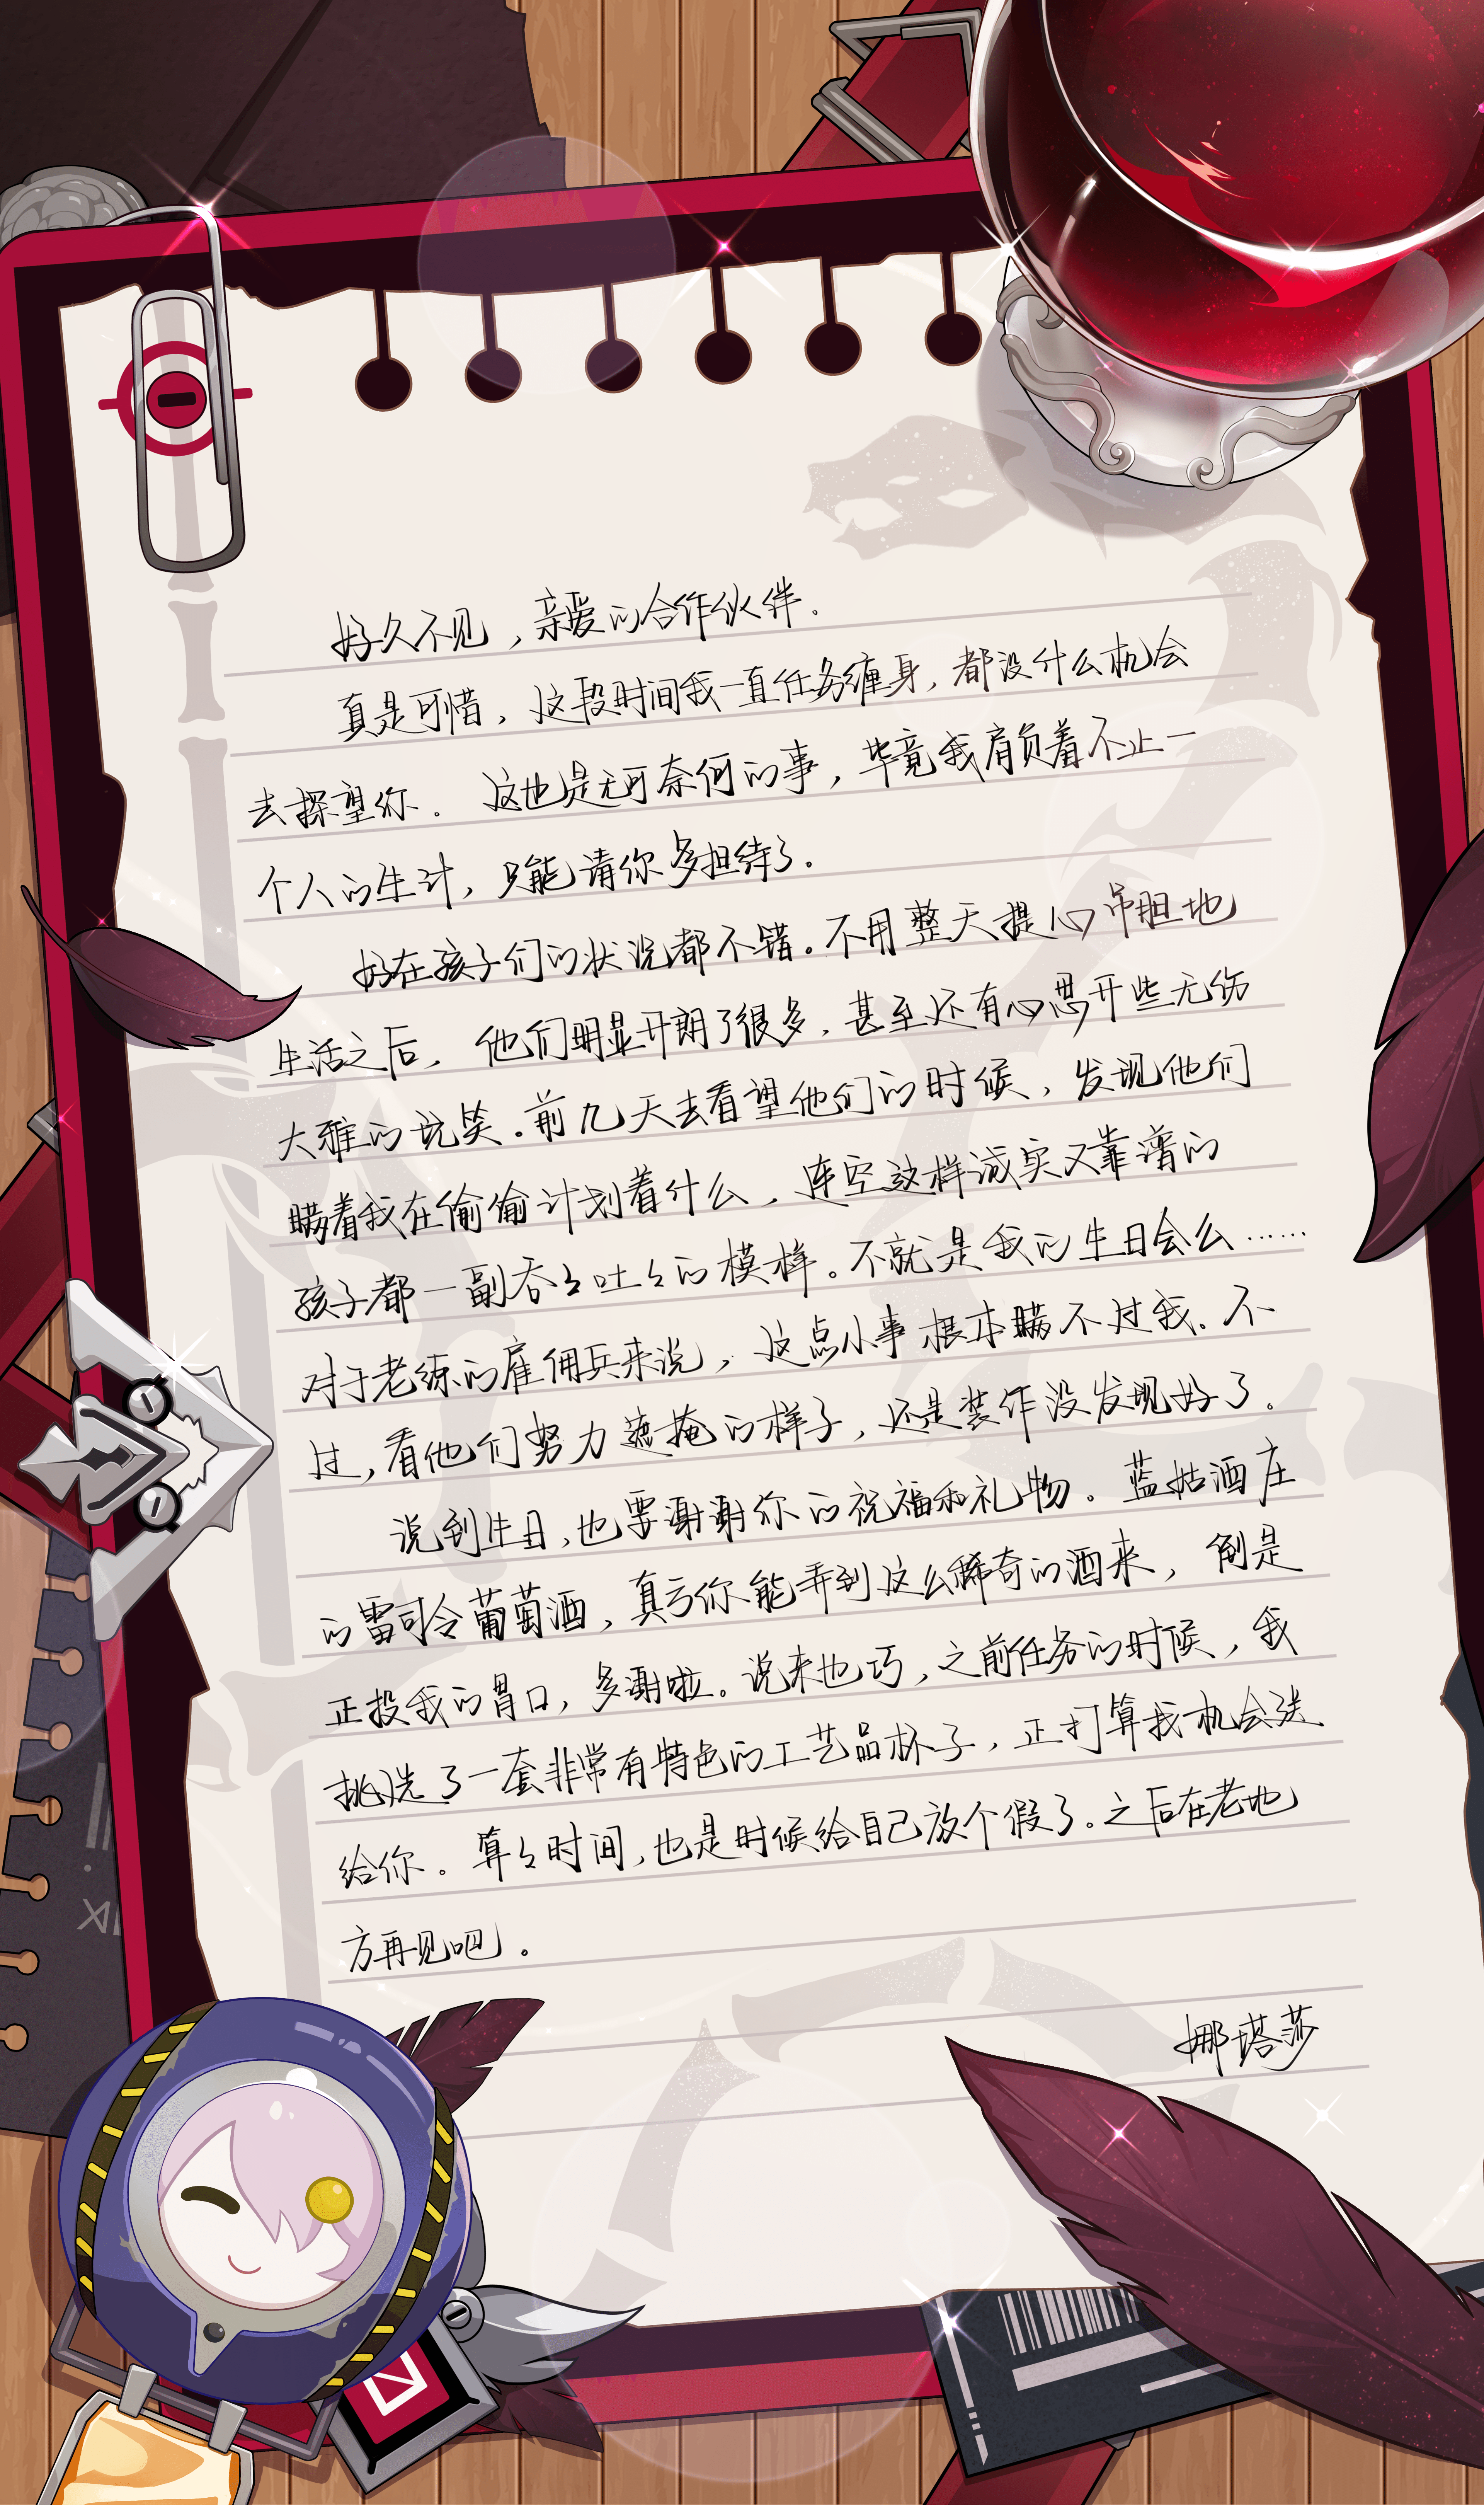 好久不见，亲爱的合作伙伴.
真是可惜，这段时间我一直任务缠身，都没什么机会
去探望你。这也是无可奈何的事，毕竟我肩负着不止一
个人的生计，只能请你多担待了.
好在孩子们的状况都不错。不用整天提心吊胆地
生活之后，他们明显开朗了很多，甚至还有心思开些无伤
大雅的说笑.前几天去看望他们的时候，发现他们
瞒着我在偷偷计划着什么，连空这样诚实又靠谱的
孩子都一副吞々吐々的模样。不就是我的生日会么……
对于老练的雇佣兵来说，这点小事根本瞒不过我.不
过，看他们努力遮掩的样子，还是装作没发现好了。
说到生日，也要谢谢你的祝福和礼物。蓝姑酒庄
的雷司令葡萄酒，真亏你能弄到这么稀奇的酒来，倒是
正投我的胃口，多谢啦。说来也巧，之前任务的时候，我
挑选了一套非常有特色的工艺品杯子，正打算找机会送
给你。算々时间，也是时候给自己放个假了。之后在老地
方再见吧。
娜塔莎